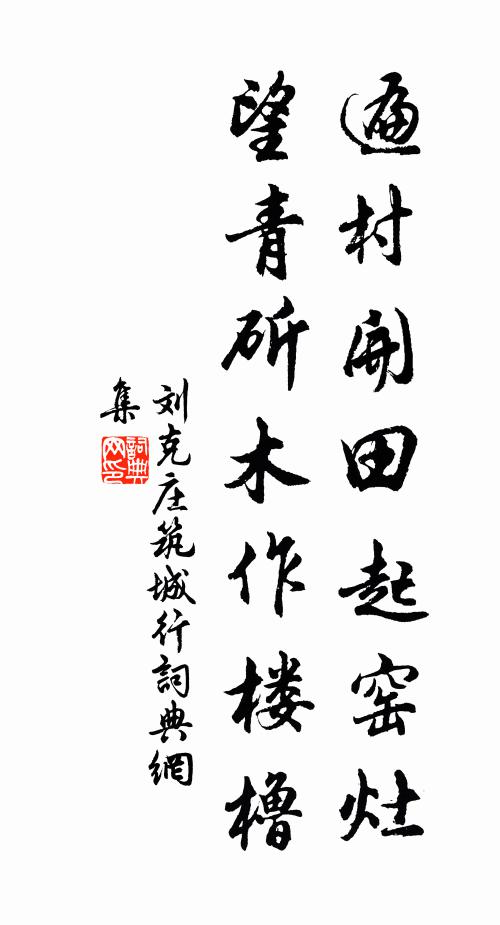 遍村开田起窑灶
望青斫木作楼橹
刘克庄筑城行詞典網
集
詞典网印